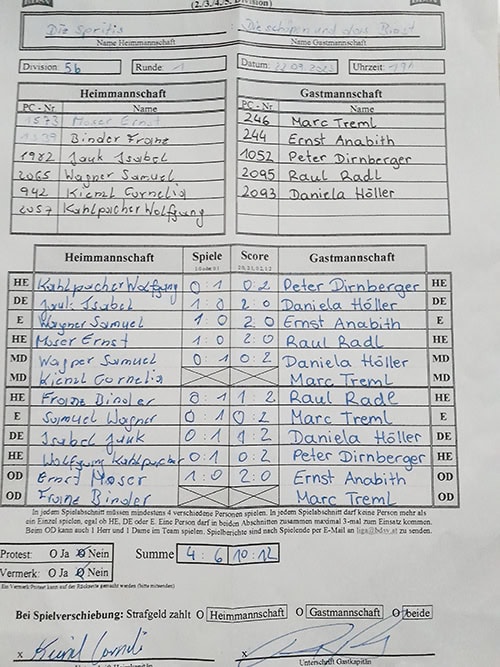 (2./3./4./5. Division)
Die Spritis Die schönen und das Biest
Name Heimmannschaft Name Gastmannschaft
Division: 5b Runde: 1 Datum: 22.09.2023 Uhrzeit: 19h
Heimmannschaft Gastmannschaft
PC - Nr Name PC - Nr Name
1573 Moser Ernst 246 Marc Treml
1539 Binder Franz 244 Ernst Anabith
1982 Jauk Isabel 1052 Peter Dirnberger
2065 Wagner Samuel 2095 Raul Radl
942 Kienzl Cornelia 2093 Daniela Höller
2057 Kahlpacher Wolfgang
Heimmannschaft Spiele Score Gastmannschaft
HE Kahlpacher Wolfgang 0 : 1 0 : 2 Peter Dirnberger HE
DE Jauk Isabel 1 : 0 2 : 0 Daniela Höller DE
E Wagner Samuel 1 : 0 2 : 0 Ernst Anabith E
HE Moser Ernst 1 : 0 2 : 0 Raul Radl HE
MD Wagner Samuel 0 : 1 0 : 2 Daniela Höller MD
MD Kienzl Cornelia Marc Treml MD
HE Franz Binder 0 : 1 1 : 2 Raul Radl HE
E Samuel Wagner 0 : 1 0 : 2 Marc Treml E
DE Isabel Jauk 0 : 1 1 : 2 Daniela Höller DE
HE Wolfgang Kahlpacher 0 : 1 0 : 2 Peter Dirnberger HE
OD Ernst Moser 1 : 0 2 : 0 Ernst Anabith OD
OD Franz Binder Marc Treml OD
In jedem Spielabschnitt müssen mindestens 4 verschiedene Personen spielen. In jedem Spielabschnitt darf keine Person mehr als
ein Einzel spielen, egal ob HE, DE oder E. Eine Person darf in beiden Abschnitten zusammen maximal 3-mal zum Einsatz kommen.
Beim OD kann auch 1 Herr und 1 Dame im Team spielen. Spielberichte sind nach Spielende per E-Mail an liga@bdsv.at zu senden.
Protest: O Ja O Nein Summe 4 : 6 10 : 12
Vermerk: O Ja O Nein
Ein Vermerk/Protest kann auf der Rückseite gemacht werden (bitte mitsenden)
Bei Spielverschiebung: Strafgeld zahlt O Heimmannschaft O Gastmannschaft O beide
x x
Unterschrift Gastkapitän